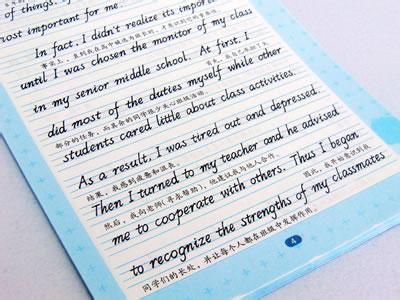 of things.
most important for me.
In fact, I didn't realize its import
until I was chosen the monitor of my class
in my senior middle school. At first, I
did most of the duties myself while other
部分的任务，而其余的同学很少关心班级活动。
students cared little about class activities.
As a result, I was tired out and depressed.
结果，我感到疲惫和沮丧。
Then I turned to my teacher and he advised
然后，我向老师(寻求帮助)，他建议我与他人合作。
me to cooperate with others. Thus I began
因此，我开始意识到我
to recognize the strengths of my classmates
同学们的长处，并让每个人都在班级中发挥作用。
4